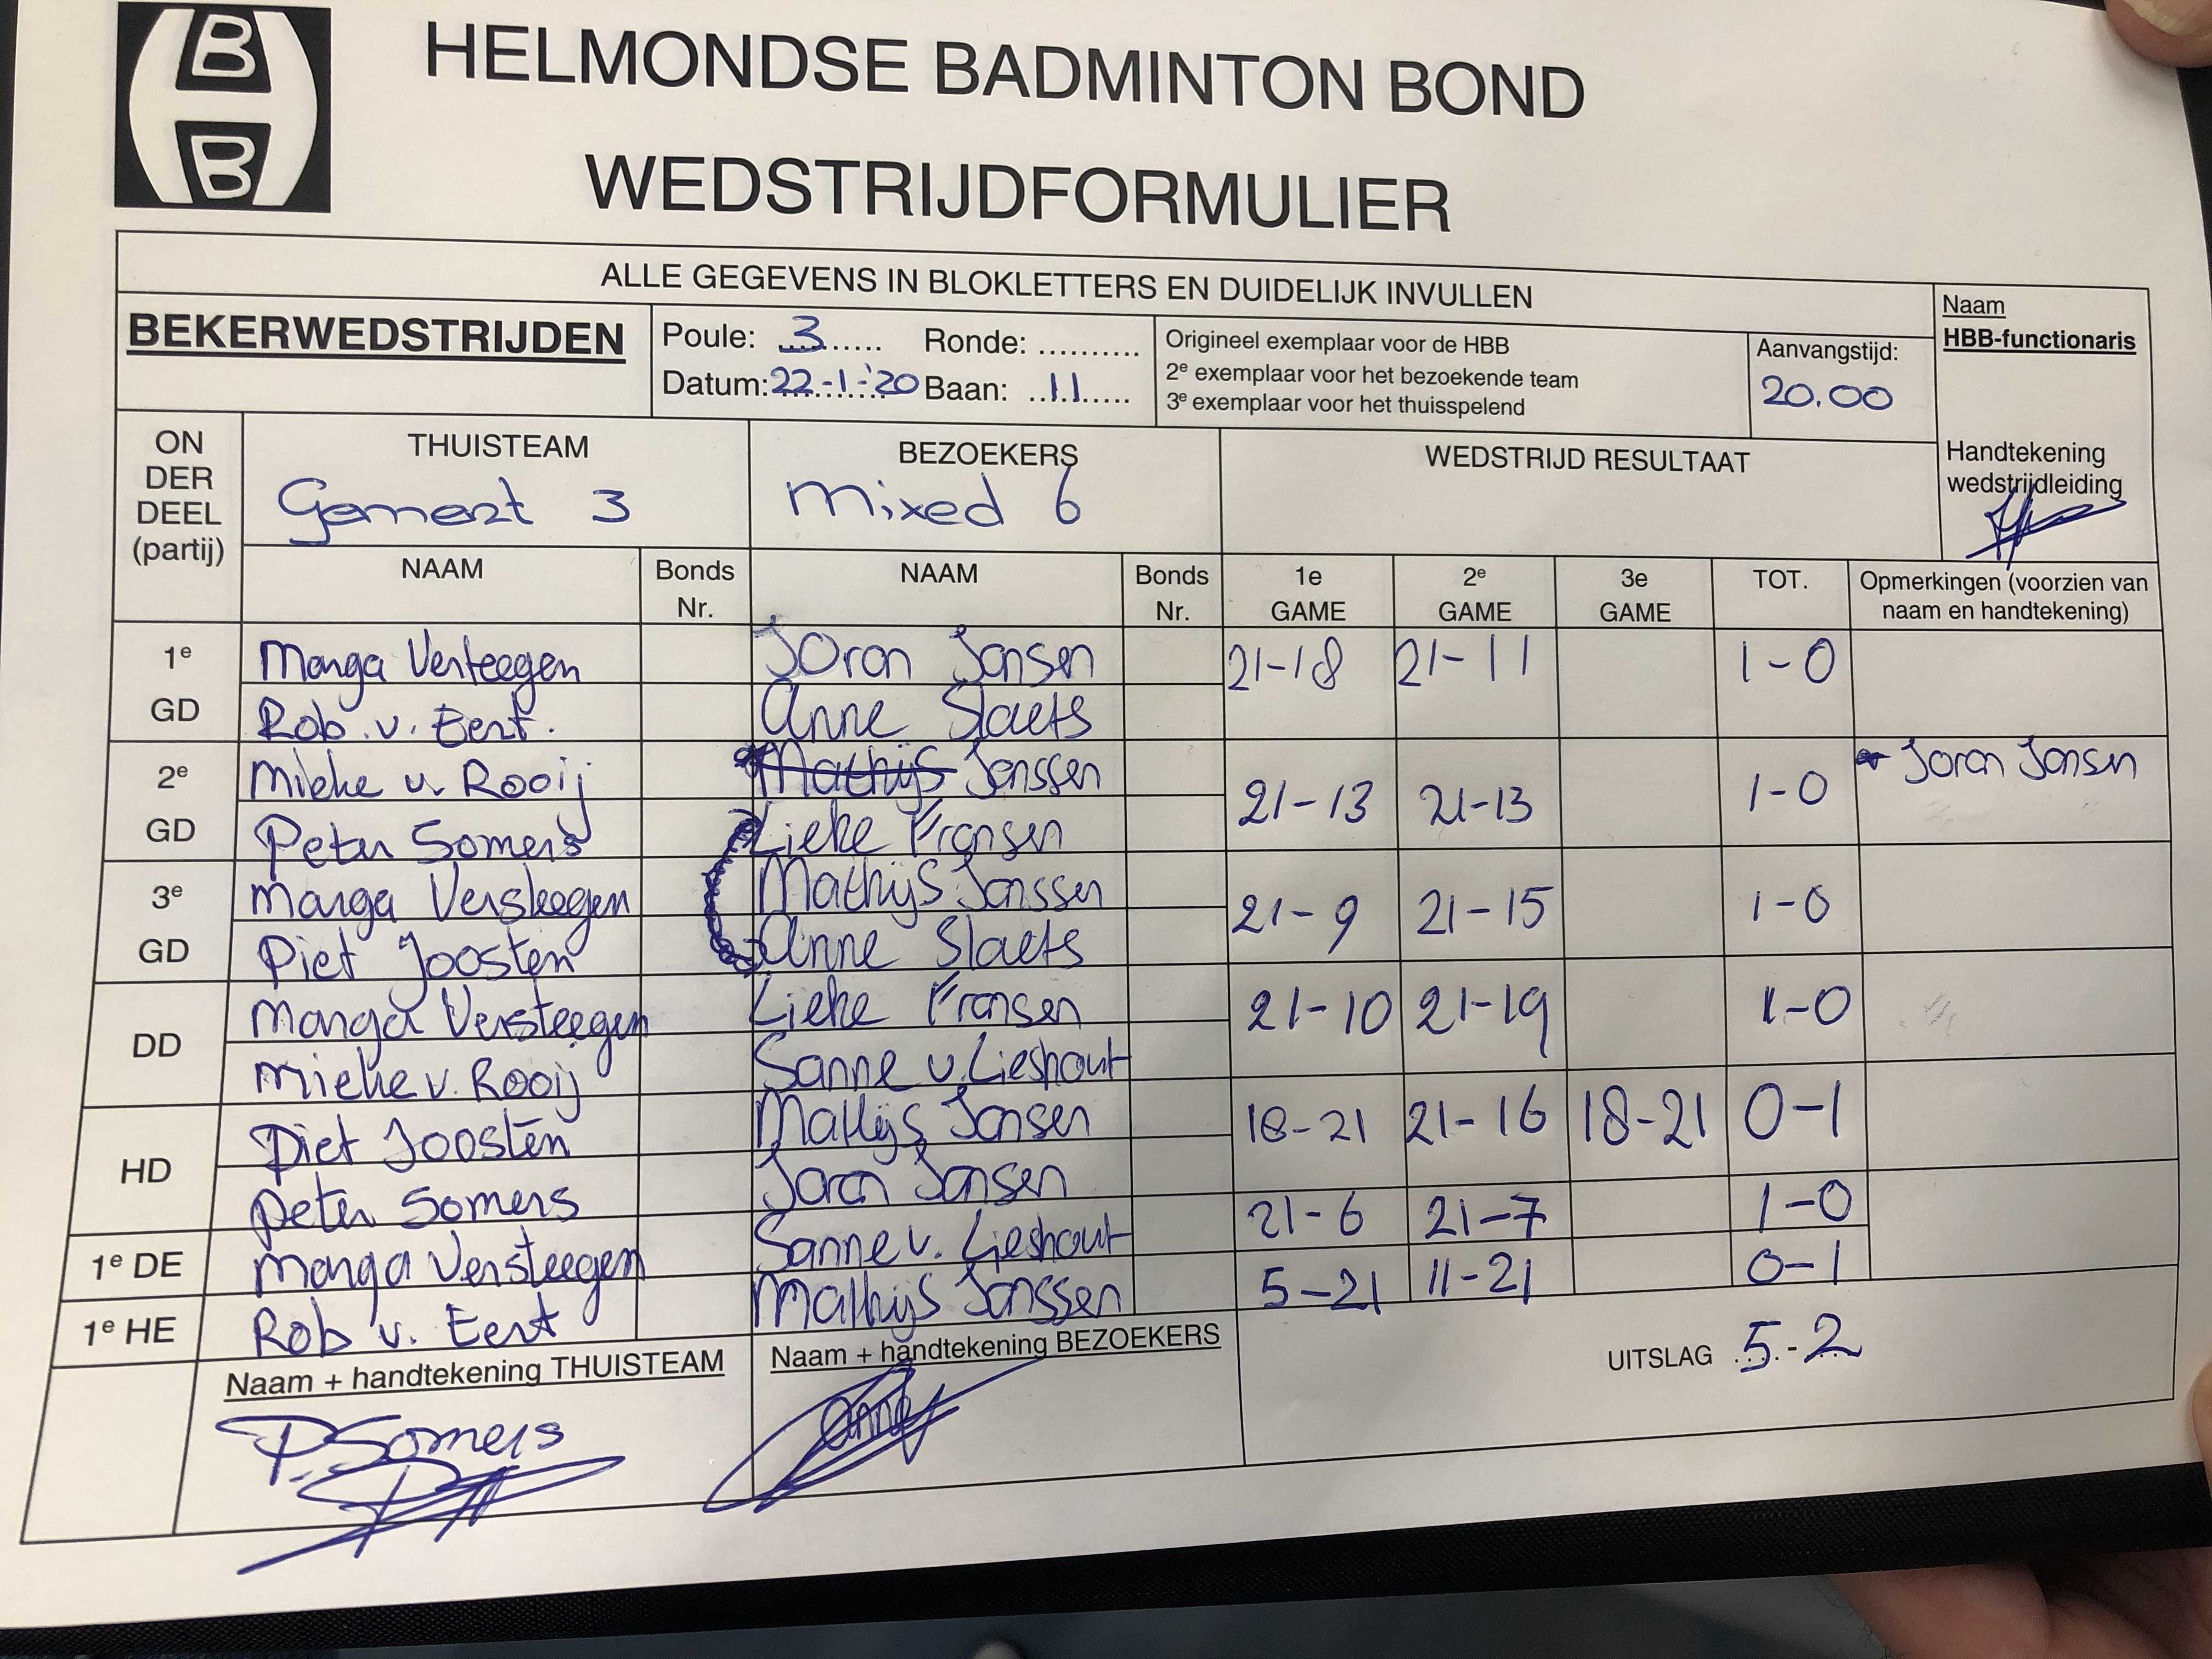 B
B
HELMONDSE BADMINTON BOND
WEDSTRIJDFORMULIER
ALLE GEGEVENS IN BLOKLETTERS EN DUIDELIJK INVULLEN
BEKERWEDSTRIJDEN
Poule: 3 Ronde: ..........
Datum: 22-1-'20 Baan: 11
Origineel exemplaar voor de HBB
2e exemplaar voor het bezoekende team
3e exemplaar voor het thuisspelend
Aanvangstijd:
20.00
Naam
HBB-functionaris
Handtekening
wedstrijdleiding
ON
DER
DEEL
(partij)
THUISTEAM
Gemert 3
BEZOEKERS
mixed 6
WEDSTRIJD RESULTAAT
NAAM Bonds Nr. NAAM Bonds Nr. 1e GAME 2e GAME 3e GAME TOT. Opmerkingen (voorzien van naam en handtekening)
1e Marga Verteegen Joran Jansen 21-18 21-11 1-0
GD Rob v. Eert. Anne Slaets
2e Mieke v. Rooij Mathijs Janssen 21-13 21-13 1-0 * Joran Jansen
GD Peter Somers Lieke Fransen
3e Marga Versteegen Mathijs Janssen 21-9 21-15 1-0
GD Piet Joosten Anne Slaets
DD Marga Versteegen Lieke Fransen 21-10 21-19 1-0
Mieke v. Rooij Sanne v. Lieshout
HD Piet Joosten Mathijs Jansen 18-21 21-16 18-21 0-1
Peter Somers Joran Jansen
1e DE Marga Versteegen Sanne v. Lieshout 21-6 21-7 1-0
1e HE Rob v. Eert Mathijs Janssen 5-21 11-21 0-1
Naam + handtekening THUISTEAM
P. Somers
Naam + handtekening BEZOEKERS
Anne
UITSLAG 5-2